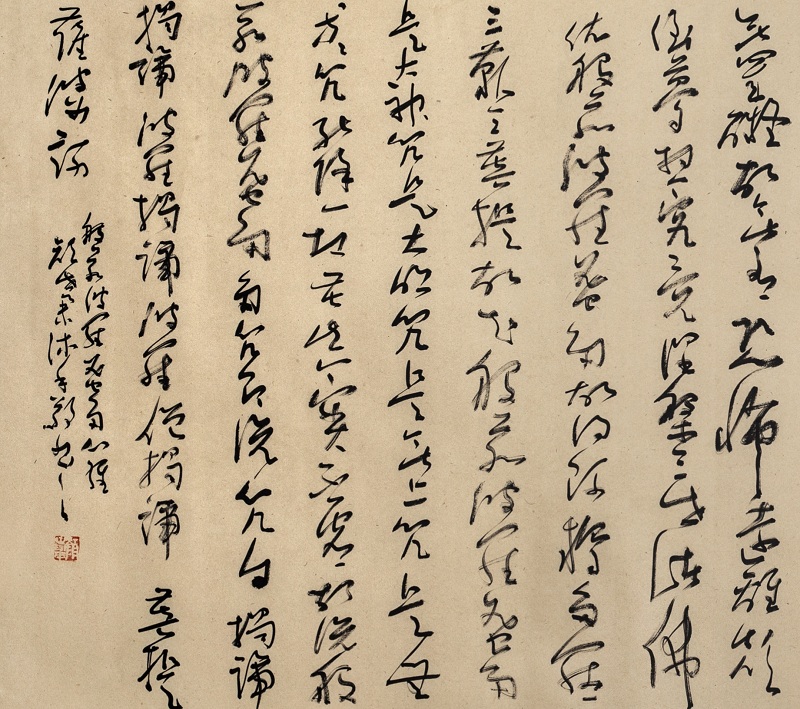 無罣礙故無有恐怖遠離顛
倒夢想究竟涅槃三世諸佛
依般若波羅蜜多故得阿耨多羅
三藐三菩提故知般若波羅蜜多
是大神咒是大明咒是無上咒是無
等等咒能除一切苦真實不虛故說般
若波羅蜜多咒即說咒曰揭諦
揭諦波羅揭諦波羅僧揭諦菩提
薩婆訶
般若波羅蜜多心經